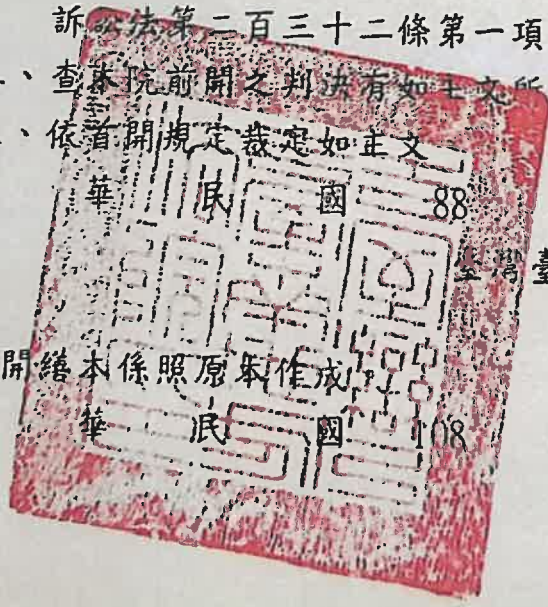 訴訟法第二百三十二條第一項
、查本院前開之判決有如上文所
、依首開規定裁定如主文
華 民 國 88
臺灣臺
開繕本係照原本作成。
華 民 國 108